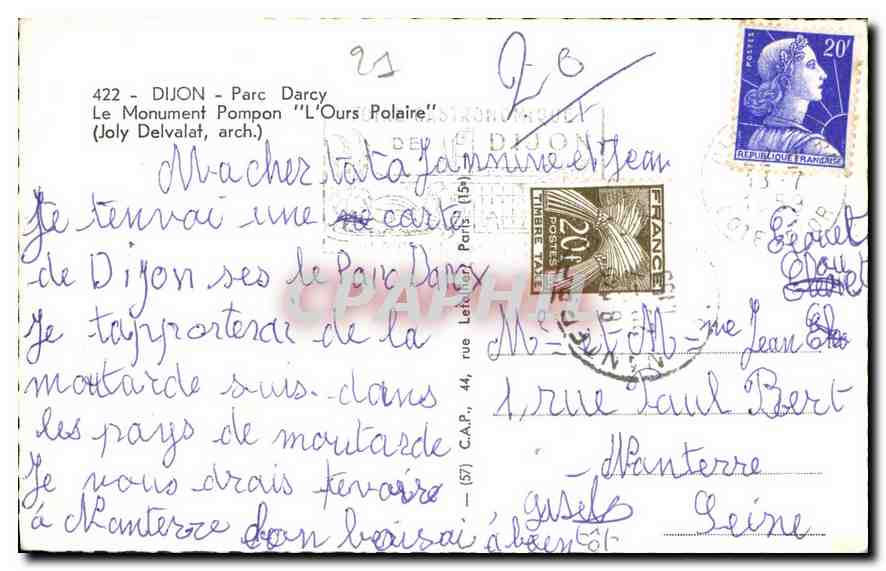 422 - DIJON - Parc Darcy
Le Monument Pompon "L'Ours Polaire"
(Joly Delvalat, arch.)
21
20
GASTRONOMIQUE
DE DIJON
POSTES
20F
REPUBLIQUE FRANÇAISE
13-7
Macher tata Jannine et Jean
Je tenvai une carte
de Dijon ses le Parc Darcy
Je tapporterai de la
moutarde suis dans
les pays de moutarde
Je vous drais tevoire
à Nanterre bon baisai à bientôt
gisel
— (57) C.A.P., 44, rue Letellier, Paris (15e)
FRANCE
20F
POSTES
TIMBRE TAXE
CPAPHIL
Mr et Mme Jean
1, rue Paul Bert
— Nanterre
Seine